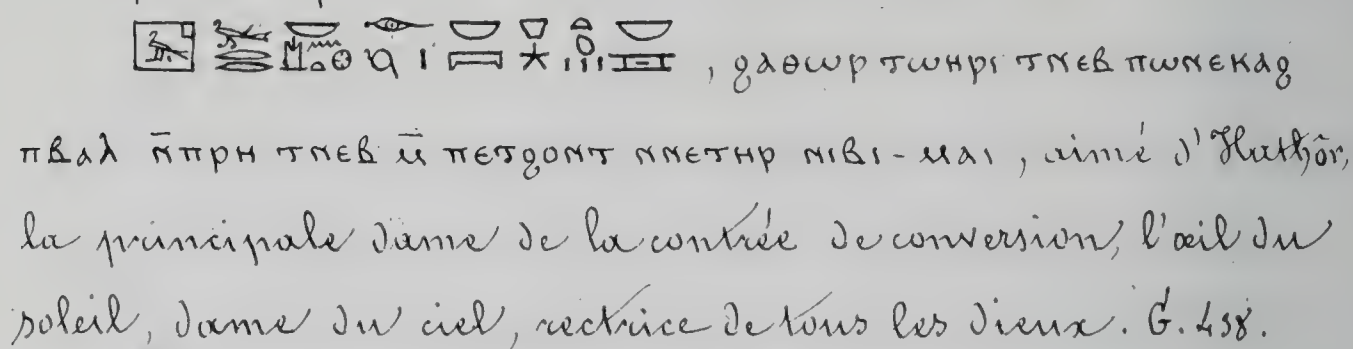 , ϩⲁⲑⲱⲣ ⲧⲱⲏⲣⲓ ⲧⲛⲉⲃ ⲡⲱⲛⲉⲕⲁϩ
ⲡⲃⲁⲗ ⲛ̄ⲡⲣⲏ ⲧⲛⲉⲃ ⲙ̄ ⲡⲉⲧϩⲟⲛⲧ ⲛⲛⲉⲧⲏⲣ ⲛⲓⲃⲓ-ⲙⲁⲓ, aimé d'Hathôr,
la principale dame de la contrée de conversion, l'œil du
soleil, dame du ciel, rectrice de tous les dieux. G. 438.